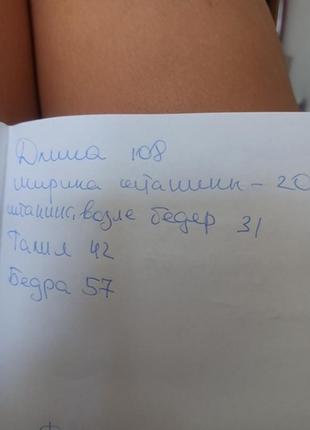 Длина 108
ширина штанины - 20
штанина, возле бедер 31
Талия 42
Бедра 57